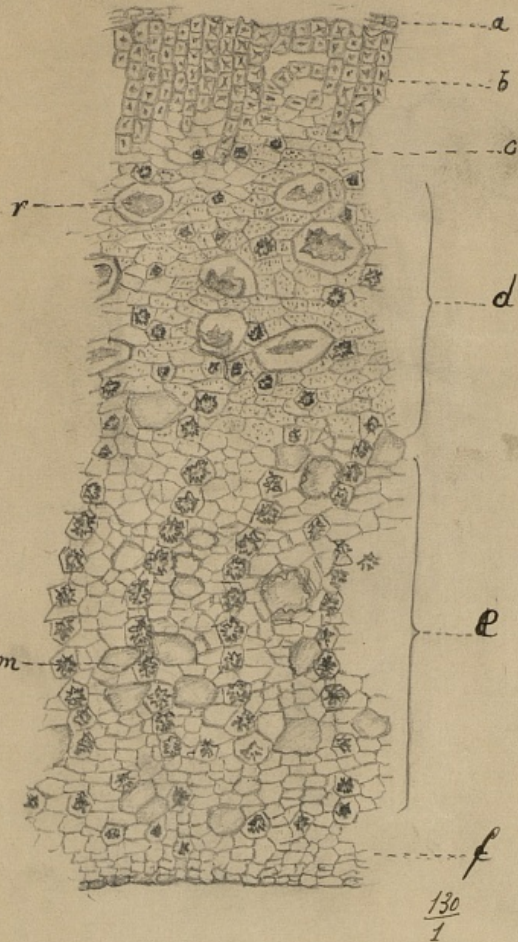 a
b
c
r
d
e
m
f
130
1